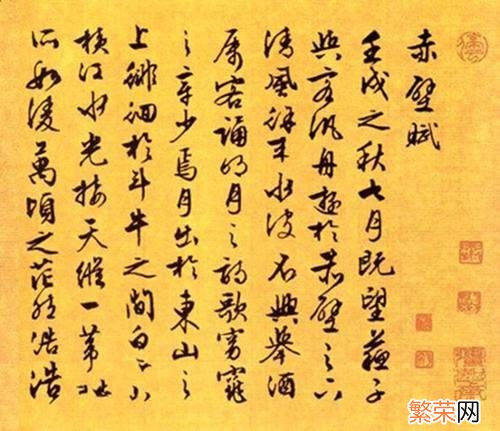 赤壁賦
壬戌之秋七月既望蘇子
與客汎舟遊於赤壁之下
清風徐來水波不興舉酒
屬客誦明月之詩歌窈窕
之章少焉月出於東山之
上徘徊於斗牛之間白露
橫江水光接天縱一葦之
所如凌萬頃之茫然浩浩
繁荣网